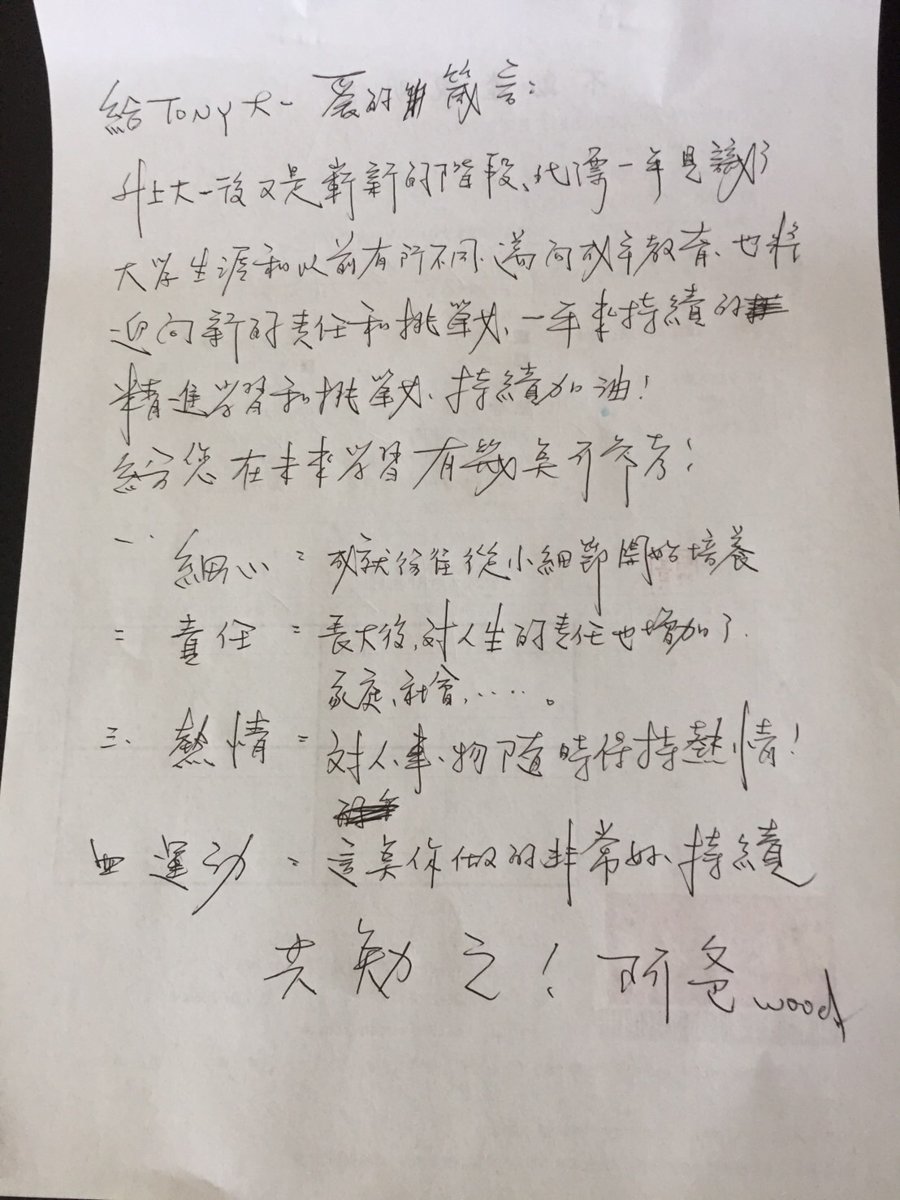 給TONY大一 愛的箴言:
升上大一後又是嶄新的階段、代標一年見識了
大学生涯和以前有所不同、邁向成年教育、也將
迎向新的責任和挑戰、一年來持續的
精進学習和挑戰、持續加油!
給您在未來学習有幾矣可參考!
一、細心= 成就往往從小細節開始培養
二 責任= 長大後,对人生的責任也增加了.
家庭、社會、……。
三、熱情= 对人、事、物隨時保持熱情!
四 運动= 這矣你做的非常好、持續
共勉之! 阿爸 wood